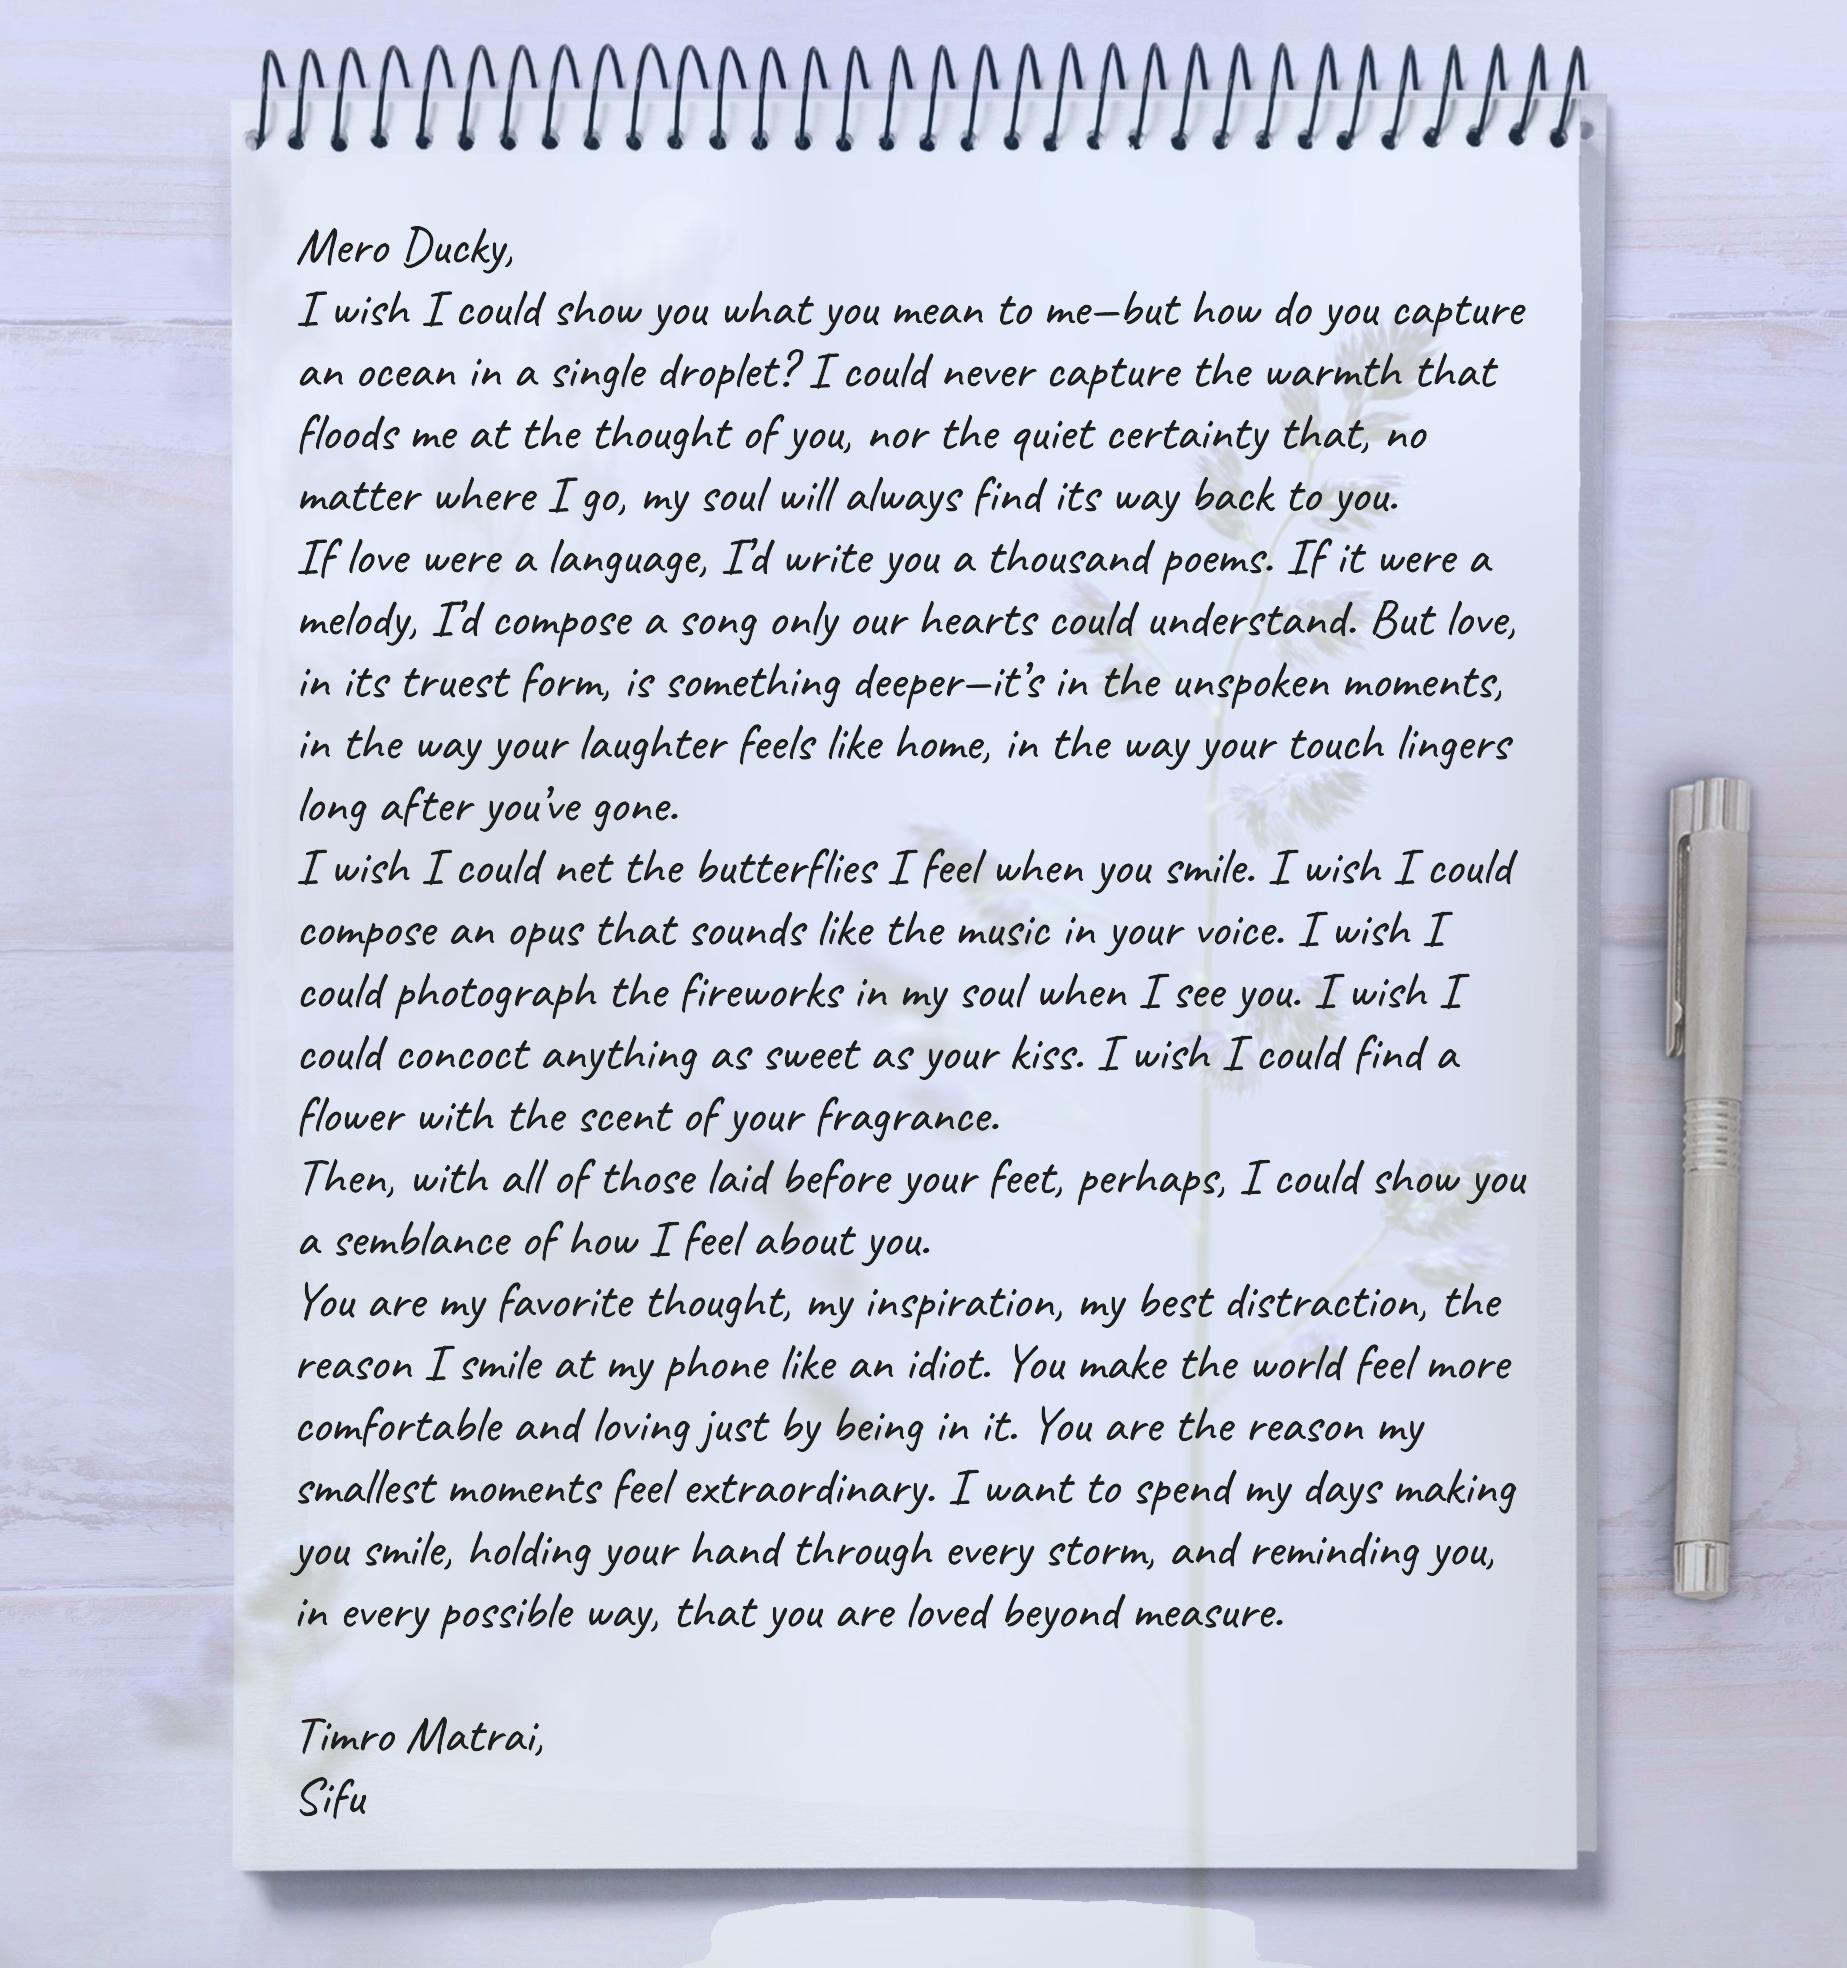 Mero Ducky,
I wish I could show you what you mean to me—but how do you capture
an ocean in a single droplet? I could never capture the warmth that
floods me at the thought of you, nor the quiet certainty that, no
matter where I go, my soul will always find its way back to you.
If love were a language, I’d write you a thousand poems. If it were a
melody, I’d compose a song only our hearts could understand. But love,
in its truest form, is something deeper—it’s in the unspoken moments,
in the way your laughter feels like home, in the way your touch lingers
long after you’ve gone.
I wish I could net the butterflies I feel when you smile. I wish I could
compose an opus that sounds like the music in your voice. I wish I
could photograph the fireworks in my soul when I see you. I wish I
could concoct anything as sweet as your kiss. I wish I could find a
flower with the scent of your fragrance.
Then, with all of those laid before your feet, perhaps, I could show you
a semblance of how I feel about you.
You are my favorite thought, my inspiration, my best distraction, the
reason I smile at my phone like an idiot. You make the world feel more
comfortable and loving just by being in it. You are the reason my
smallest moments feel extraordinary. I want to spend my days making
you smile, holding your hand through every storm, and reminding you,
in every possible way, that you are loved beyond measure.
Timro Matrai,
Sifu